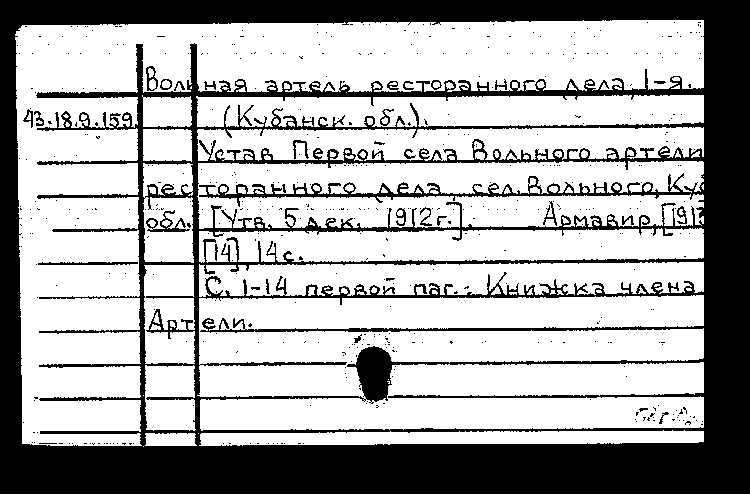 Вольная артель ресторанного дела, 1-я.
43.18.9.159. (Кубанск. обл.).
Устав Первой села Вольного артели
ресторанного дела, сел. Вольного, Куб
обл. [Утв. 5 дек. 1912 г.]. Армавир, [191
[14], 14 с.
С. 1-14 первой паг.: Книжка члена
Артели.